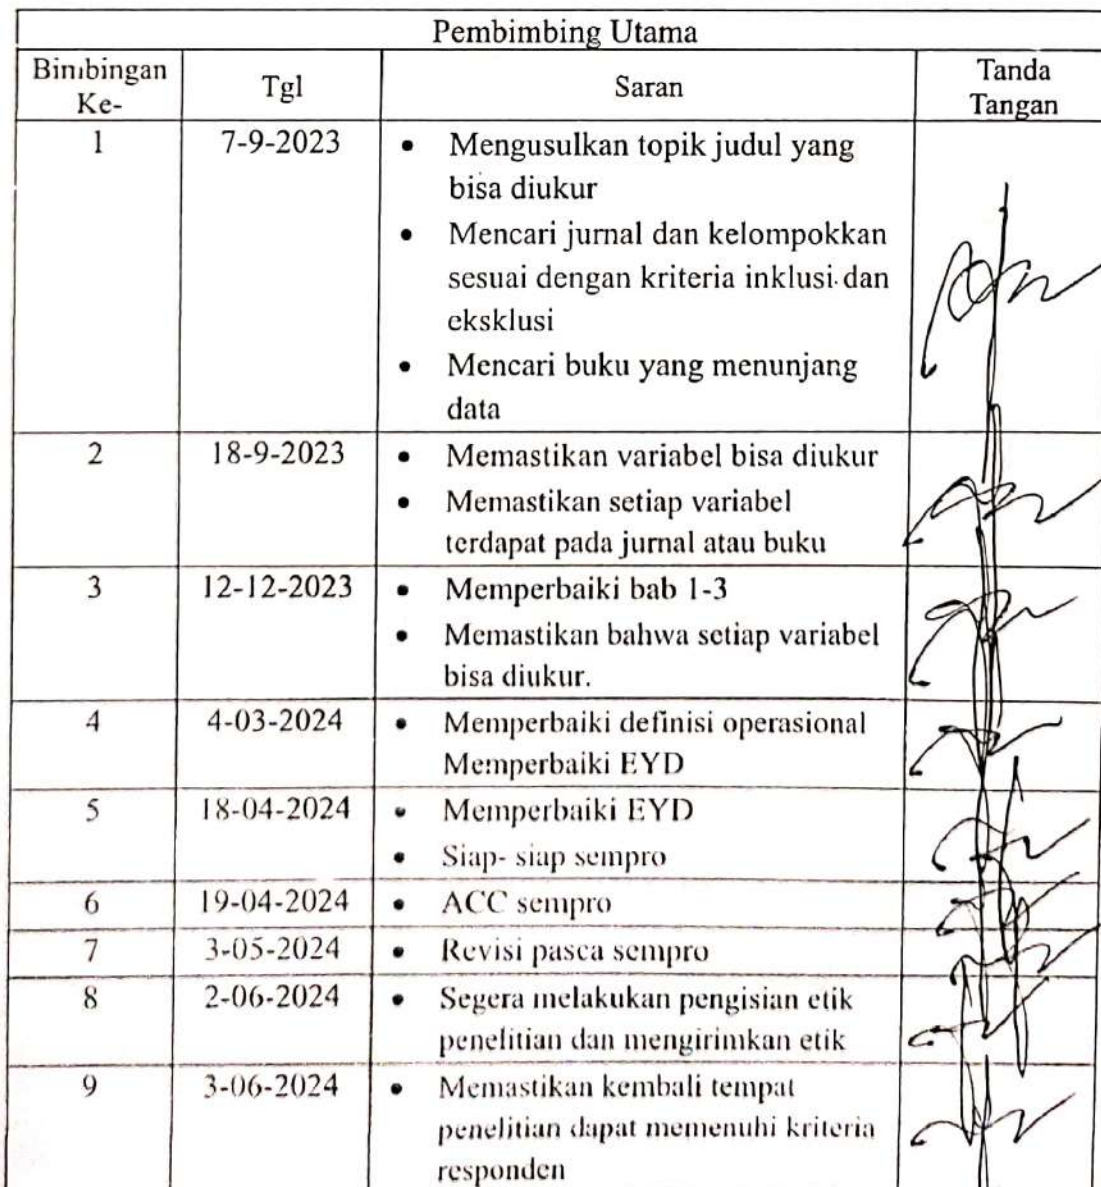 Pembimbing Utama
Bimbingan Ke- Tgl Saran Tanda Tangan
1 7-9-2023 • Mengusulkan topik judul yang
bisa diukur
• Mencari jurnal dan kelompokkan
sesuai dengan kriteria inklusi dan
eksklusi
• Mencari buku yang menunjang
data
2 18-9-2023 • Memastikan variabel bisa diukur
• Memastikan setiap variabel
terdapat pada jurnal atau buku
3 12-12-2023 • Memperbaiki bab 1-3
• Memastikan bahwa setiap variabel
bisa diukur.
4 4-03-2024 • Memperbaiki definisi operasional
Memperbaiki EYD
5 18-04-2024 • Memperbaiki EYD
• Siap- siap sempro
6 19-04-2024 • ACC sempro
7 3-05-2024 • Revisi pasca sempro
8 2-06-2024 • Segera melakukan pengisian etik
penelitian dan mengirimkan etik
9 3-06-2024 • Memastikan kembali tempat
penelitian dapat memenuhi kriteria
responden